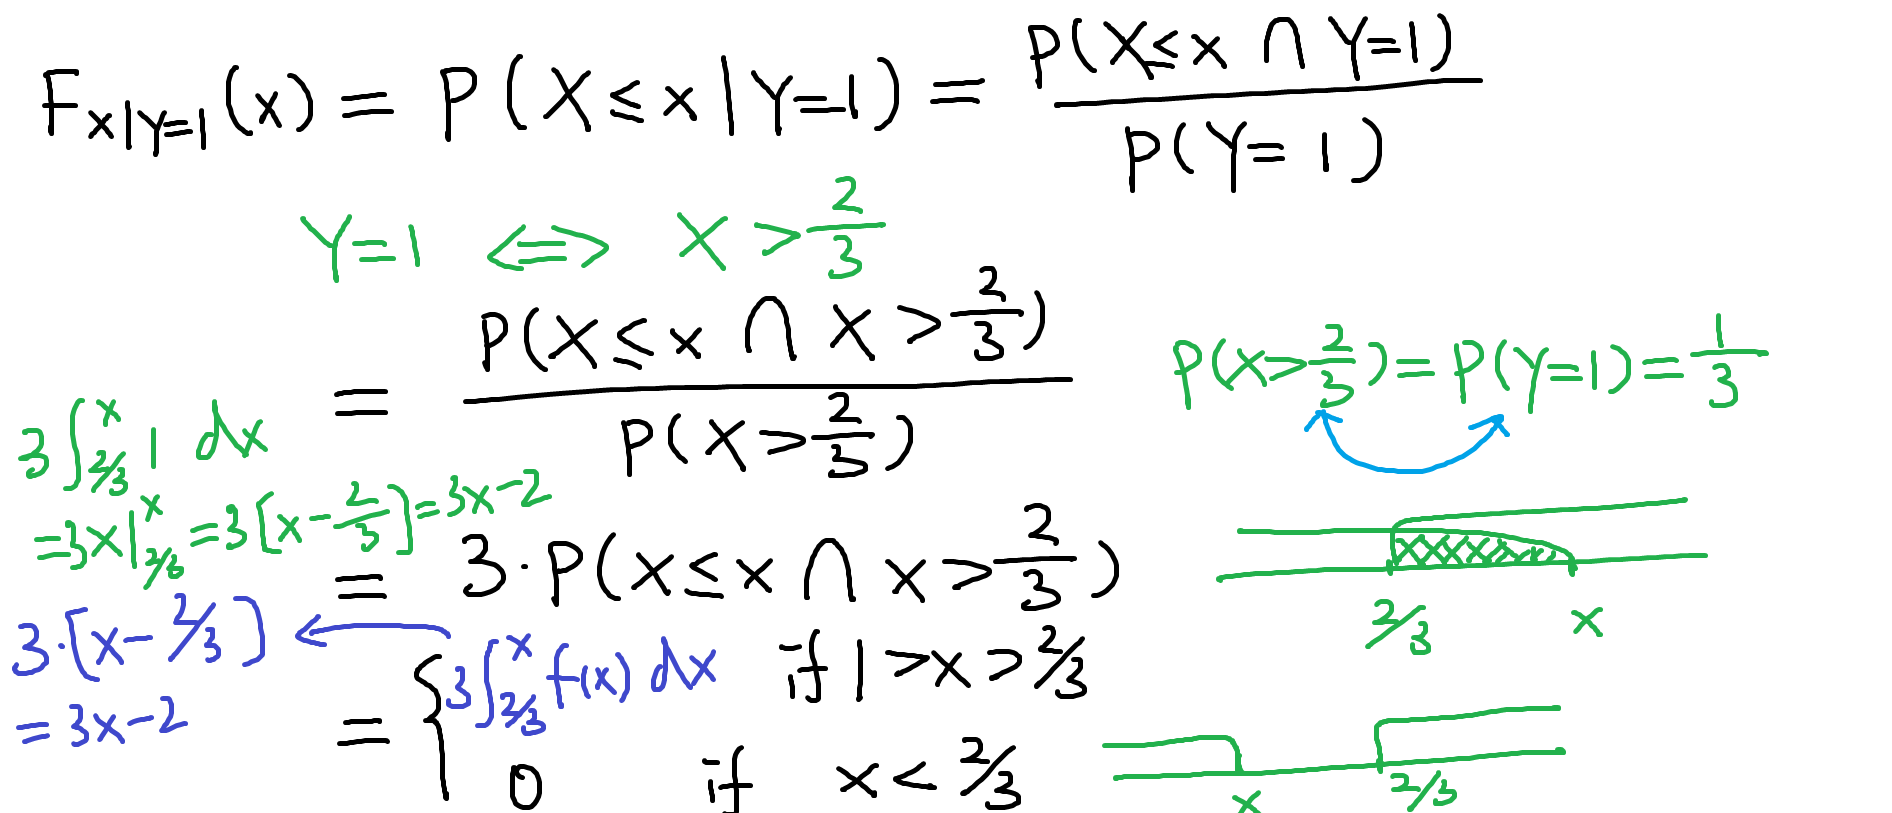 F_{X|Y=1}(x) = P(X ≤ x | Y=1) = P(X ≤ x ∩ Y=1) / P(Y=1)
Y=1 ⟺ X > 2/3
= P(X ≤ x ∩ X > 2/3) / P(X > 2/3)
P(X > 2/3) = P(Y=1) = 1/3
3 ∫_{2/3}^{x} 1 dx
= 3x |_{2/3}^{x} = 3[x - 2/3] = 3x - 2
= 3 · P(X ≤ x ∩ X > 2/3)
2/3 x
3 · [x - 2/3] ←
= 3x - 2
= { 3 ∫_{2/3}^{x} f(x) dx if 1 > x > 2/3
0 if x < 2/3
x 2/3